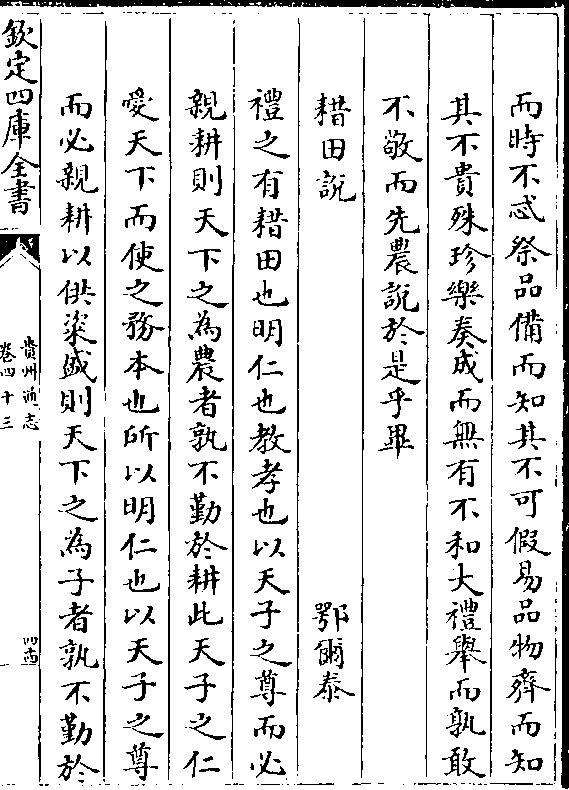 而時不忒祭品備而知其不可假易品物齊而知
其不貴殊珍樂奏成而無有不和大禮舉而孰敢
不敬而先農說於是乎畢
耤田說 鄂爾泰
禮之有耤田也明仁也教孝也以天子之尊而必
親耕則天下之為農者孰不勤於耕此天子之仁
愛天下而使之務本也所以明仁也以天子之尊
而必親耕以供粢盛則天下之為子者孰不勤於
欽定四庫全書
貴州通志
卷四十三